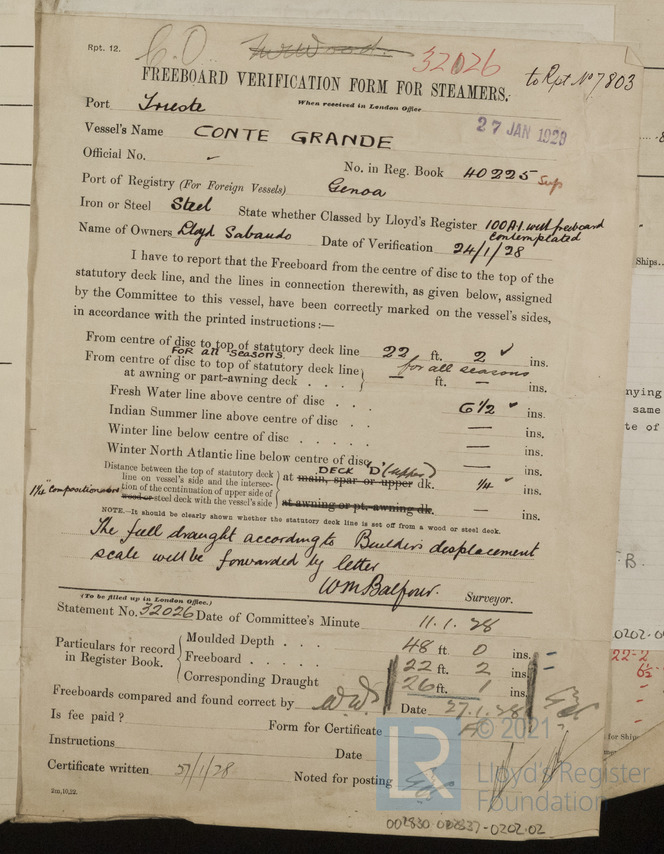 Rpt. 12.
C.O.
32026
to Rpt No 7803
FREEBOARD VERIFICATION FORM FOR STEAMERS.
Port Trieste
When received in London Office
27 JAN 1929
Vessel's Name CONTE GRANDE
Official No. -
No. in Reg. Book 40225 Sup
Port of Registry (For Foreign Vessels) Genoa
Iron or Steel Steel State whether Classed by Lloyd's Register 100A1. with freeboard
contemplated
Name of Owners Lloyd Sabaudo Date of Verification 24/1/28
I have to report that the Freeboard from the centre of disc to the top of the
statutory deck line, and the lines in connection therewith, as given below, assigned
by the Committee to this vessel, have been correctly marked on the vessel's sides,
in accordance with the printed instructions:—
From centre of disc to top of statutory deck line 22 ft. 2 ins.
FOR all seasons
From centre of disc to top of statutory deck line for all seasons
at awning or part-awning deck . . . — ft. — ins.
Fresh Water line above centre of disc . . . 6 1/2 ins.
Indian Summer line above centre of disc . . — ins.
Winter line below centre of disc . . . . . — ins.
Winter North Atlantic line below centre of disc — ins.
DECK 'D' (upper)
Distance between the top of statutory deck
line on vessel's side and the intersec- at main, spar or upper dk. 1/4 ins.
tion of the continuation of upper side of
composition
wood or steel deck with the vessel's side at awning or pt. awning dk. — ins.
NOTE.—It should be clearly shown whether the statutory deck line is set off from a wood or steel deck.
The full draught according to Builders displacement
scale will be forwarded by letter
WM Balfour. Surveyor.
(To be filled up in London Office.)
Statement No. 32026 Date of Committee's Minute 11.1.28
Particulars for record
in Register Book.
Moulded Depth . . . 48 ft. 0 ins.
Freeboard . . . . . 22 ft. 2 ins.
Corresponding Draught 26 ft. 1 ins.
Freeboards compared and found correct by Date 27.1.28
Is fee paid ? Form for Certificate A
Instructions Date
Certificate written 5/1/28 Noted for posting
2m,10,22.
© 2021
LR
Lloyd's Register
Foundation
002830-002837-0202-02
Ships..
nying
same
te of
B.
0202-0
22-2
6½
for Ship